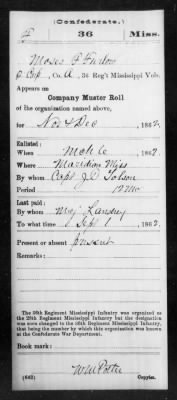 (Confederate.)
F 36 Miss.
Moses P Furlow
Co. A, 36 Reg't Mississippi Vols.
Appears on
Company Muster Roll
of the organization named above,
for Nov & Dec, 1862.
Enlisted:
When Mch 6, 1862.
Where Meridian Miss
By whom Capt J. D. Tolson
Period 12 Mo
Last paid:
By whom Maj Lansey
To what time Sept 1, 1862.
Present or absent Present
Remarks:
The 36th Regiment Mississippi Infantry was organized as
the 25th Regiment Mississippi Infantry but the designation
was soon changed to the 36th Regiment Mississippi Infantry,
that being the number by which this organization was known
at the Confederate War Department.
Book mark:
(642) Copyist.